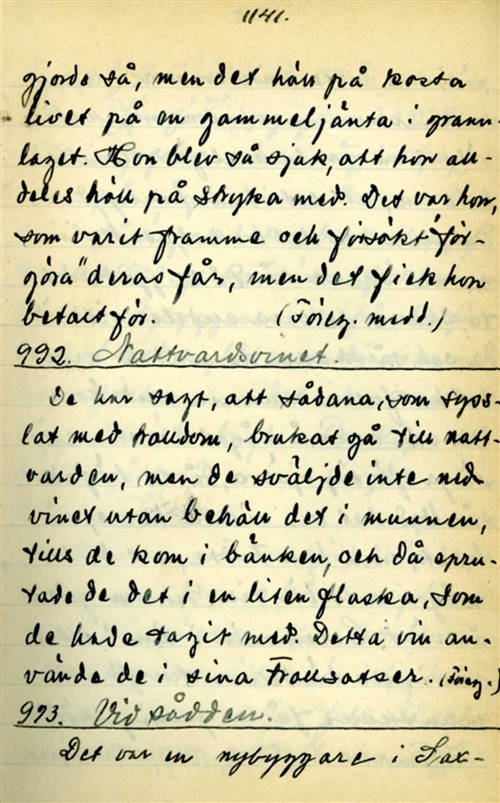 1141.
gjorde så, men det höll på kosta
livet på en gammeljänta i grann-
laget. Hon blev så sjuk, att hon all-
deles höll på stryka med. Det var hon,
som varit framme och försökt "för-
göra" deras får, men det fick hon
betalt för. (Föreg. medd.)
992. Nattvardsvinet.
De har sagt, att sådana, som syss-
lat med trolldom, brukat gå till natt-
varden, men de sväljde inte ned
vinet utan behöll det i munnen,
tills de kom i bänken, och då spru-
tade de det i en liten flaska, som
de hade tagit med. Detta vin an-
vände de i sina trollsatser. (Föreg.)
993. Vid sådden.
Det var en nybyggare i Sax-